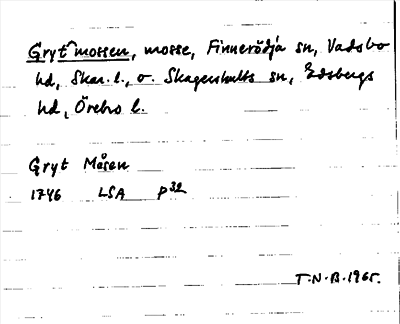 Grytmossen, mosse, Finnerödja sn, Vadsbo
hd, Skar. l., o. Skagershults sn, Edsbergs
hd, Örebro l.
Gryt Måsen
1746 LSA p32
T.N.B. 1965.